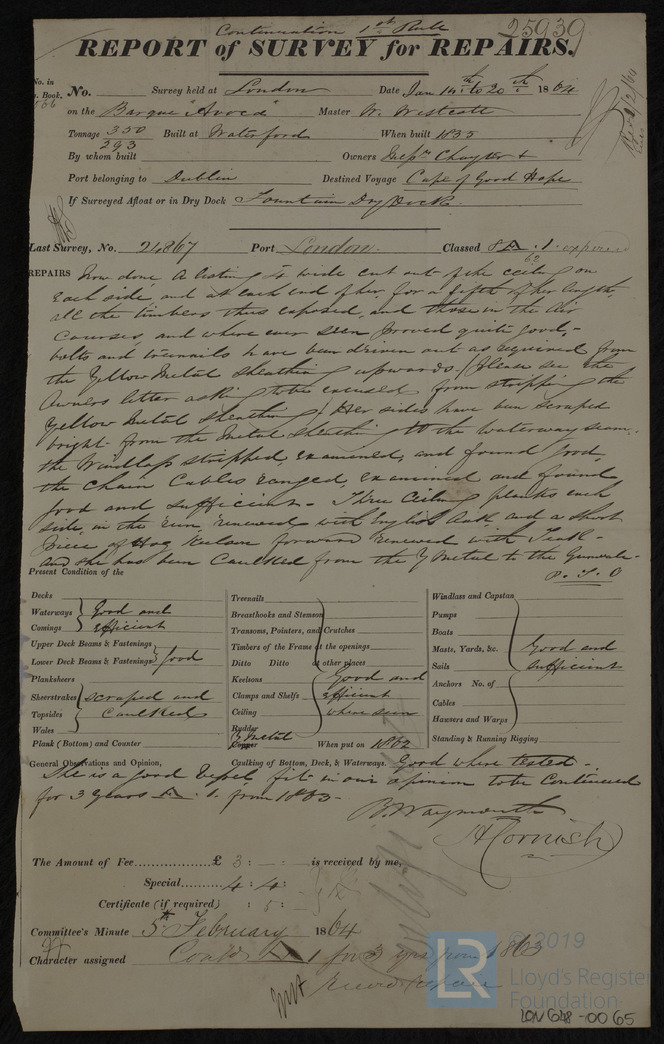 Continuation 1st Rule
25939
REPORT of SURVEY for REPAIRS.
No. in
Book.
566
No. Survey held at London Date Jan 14th to 20th 1864
on the Barque "Avoca" Master W. Westcott
Tonnage 350 Built at Waterford When built 1835
293
By whom built Owners Messrs Chayter &
Port belonging to Dublin Destined Voyage Cape of Good Hope
If Surveyed Afloat or in Dry Dock Fountain Dry Dock.
Last Survey, No. 24867 Port London. Classed 8 A. 1. expired
62
REPAIRS Now done, A listing wide cut out of the ceiling on
each side, and at each end of her for a fifth of her length,
all the timbers thus exposed, and those in the Air
Courses, and where ever seen proved quite good,-
bolts and treenails have been driven out as required from
the Yellow Metal Sheathing upwards. (Please see the
Owners letter asking to be excused from stripping the
Yellow Metal Sheathing). Her sides have been scraped
bright from the Metal Sheathing to the waterway seam.
the Windlass stripped, examined, and found good,
the Chain Cables ranged, examined and found
good and sufficient. - Three Ceiling planks each
side, in the run, renewed with English Oak and a short
piece of Hog Keelson forward renewed with Teak -
and she has been Caulked from the Y Metal to the Gunwale -
P. T. O
Present Condition of the
Decks
Waterways Good and
Comings efficient
Upper Deck Beams & Fastenings
Lower Deck Beams & Fastenings good
Planksheers
Sheerstrakes scraped and
Topsides Caulked
Wales
Plank (Bottom) and Counter
Treenails
Breasthooks and Stemson
Transoms, Pointers, and Crutches
Timbers of the Frame at the openings
Ditto Ditto at other places
Keelsons Good and
Clamps and Shelfs efficient
Ceiling where seen
Rudder
Y Metal
Copper When put on 1862
Windlass and Capstan
Pumps
Boats
Masts, Yards, &c. Good and
Sails sufficient
Anchors No. of
Cables
Hawsers and Warps
Standing & Running Rigging
General Observations and Opinion, Caulking of Bottom, Deck, & Waterways. Good where tested -.
She is a good Vessel fit in our opinion to be Continued
for 3 Years A. 1. from 1863 -
B. Waymouth
H Cornish
The Amount of Fee £ 3 : - : - is received by me,
Special 4 : 4 :
Certificate (if required) : 5 :
Committee's Minute 5th February 1864
Character assigned Contd A 1 for 3 yrs from 1863
© 2019
LR
Lloyd's Register
Foundation
LON 648-0065